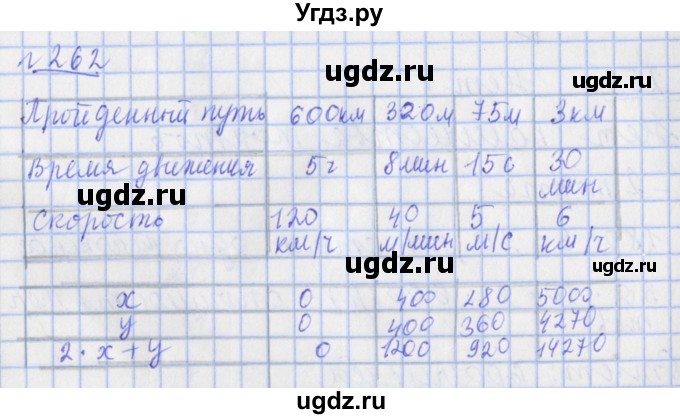 Угдз.ру
г 262
ugdz.ru ugdz.ru
Пройденный путь 600км 320м 75м 3км
ugdz.ru
Время движения 5ч 8мин 15с 30 мин
ugdz.ru ugdz.ru
Скорость 120 км/ч 40 м/мин 5 м/с 6 км/ч
ugdz.ru
x 0 400 280 5000
ugdz.ru ugdz.ru
y 0 400 360 4270
2·x+y 0 1200 920 14270
ugdz.ru